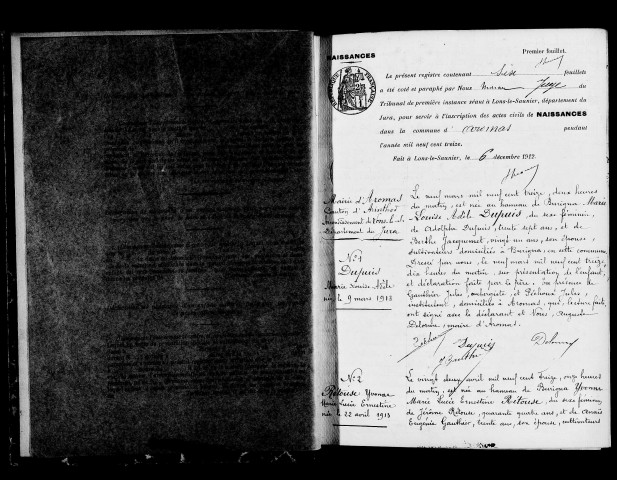 NAISSANCES
Premier feuillet.
Le présent registre contenant Six feuillets
a été coté et paraphé par Nous Juge du
Tribunal de première instance séant à Lons-le-Saunier, département du
Jura, pour servir à l'inscription des actes civils de NAISSANCES
dans la commune d'Aromas pendant
l'année mil neuf cent treize.
Fait à Lons-le-Saunier, le 6 décembre 1912.
Mairie d'Aromas
Canton d'Arinthod
Arrondissement de Lons-l-S.
Département du Jura
N° 1
Dupuis
Marie Louise Adèle
née le 9 mars 1913
Le neuf mars mil neuf cent treize, deux heures
du matin, est née au hameau de Burigna Marie
Louise Adèle Dupuis du sexe féminin,
de Adolphe Dupuis, trente sept ans, et de
Berthe Jacquemet, vingt un ans, son épouse,
cultivateurs domiciliés à Burigna, en cette commune,
Dressé par nous, le neuf mars mil neuf cent treize,
dix heures du matin, sur présentation de l'enfant,
et déclaration faite par le père. En présence de
Gauthier Jules, aubergiste, et Péchoux Jules,
instituteur, domiciliés à Aromas, qui, lecture faite,
ont signé avec le déclarant et Nous, Auguste
Delorme, maire d'Aromas.
Dupuis
N° 2
Rétouse Yvonne
Marie Lucie Ernestine
née le 22 avril 1913
Le vingt deux avril mil neuf cent treize, onze heures
du matin, est née au hameau de Burigna Yvonne
Marie Lucie Ernestine Rétouse, du sexe féminin,
de Jérôme Rétouse, quarante quatre ans, et de Anaïs
Eugénie Gauthier, trente ans, son épouse, cultivateurs